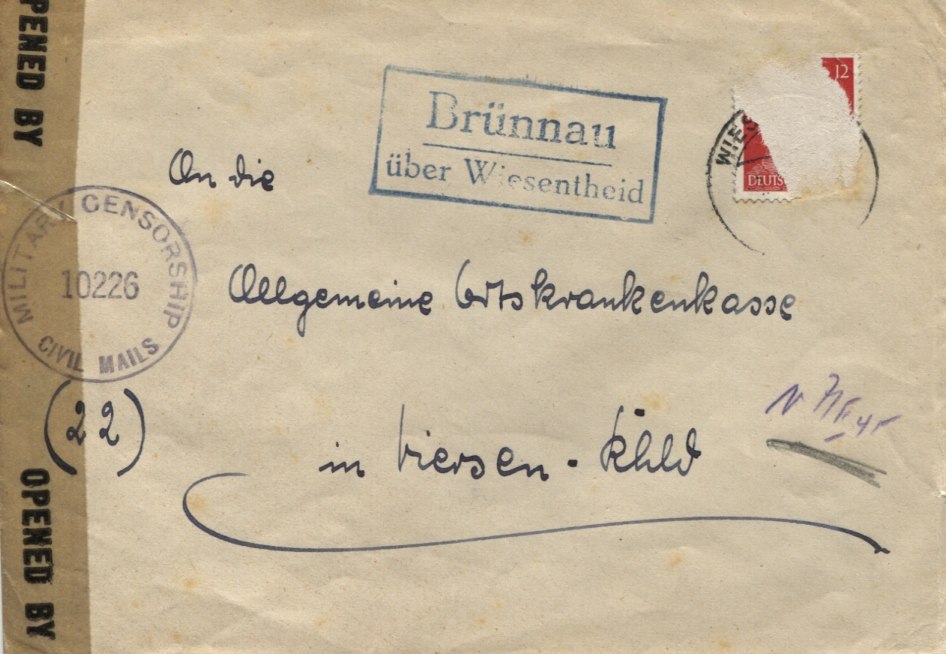 OPENED BY
OPENED BY
MILITARY CENSORSHIP
10226
CIVIL MAILS
Brünnau
über Wiesentheid
12
WIES
DEUTS
An die
Allgemeine Ortskrankenkasse
(22)
in Viersen - Rhld